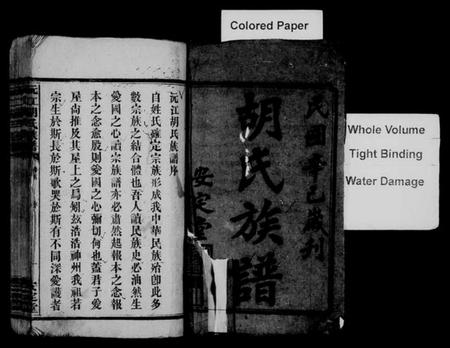 Colored Paper
Whole Volume
Tight Binding
Water Damage
民國辛巳歲刊
胡氏族譜
安定堂
沅江胡氏族譜序
自姓氏確定宗族形成我中華民族殆卽此多
數宗族之結合體也吾人讀民族史必油然生
愛國之心讀宗族譜亦必肅然起報本之念報
本之念愈殷則愛國之心彌切何也蓋君子愛
屋尙推及其屋上之烏矧茲浩浩神州我祖若
宗生於斯長於斯歌哭於斯有不同深愛護者